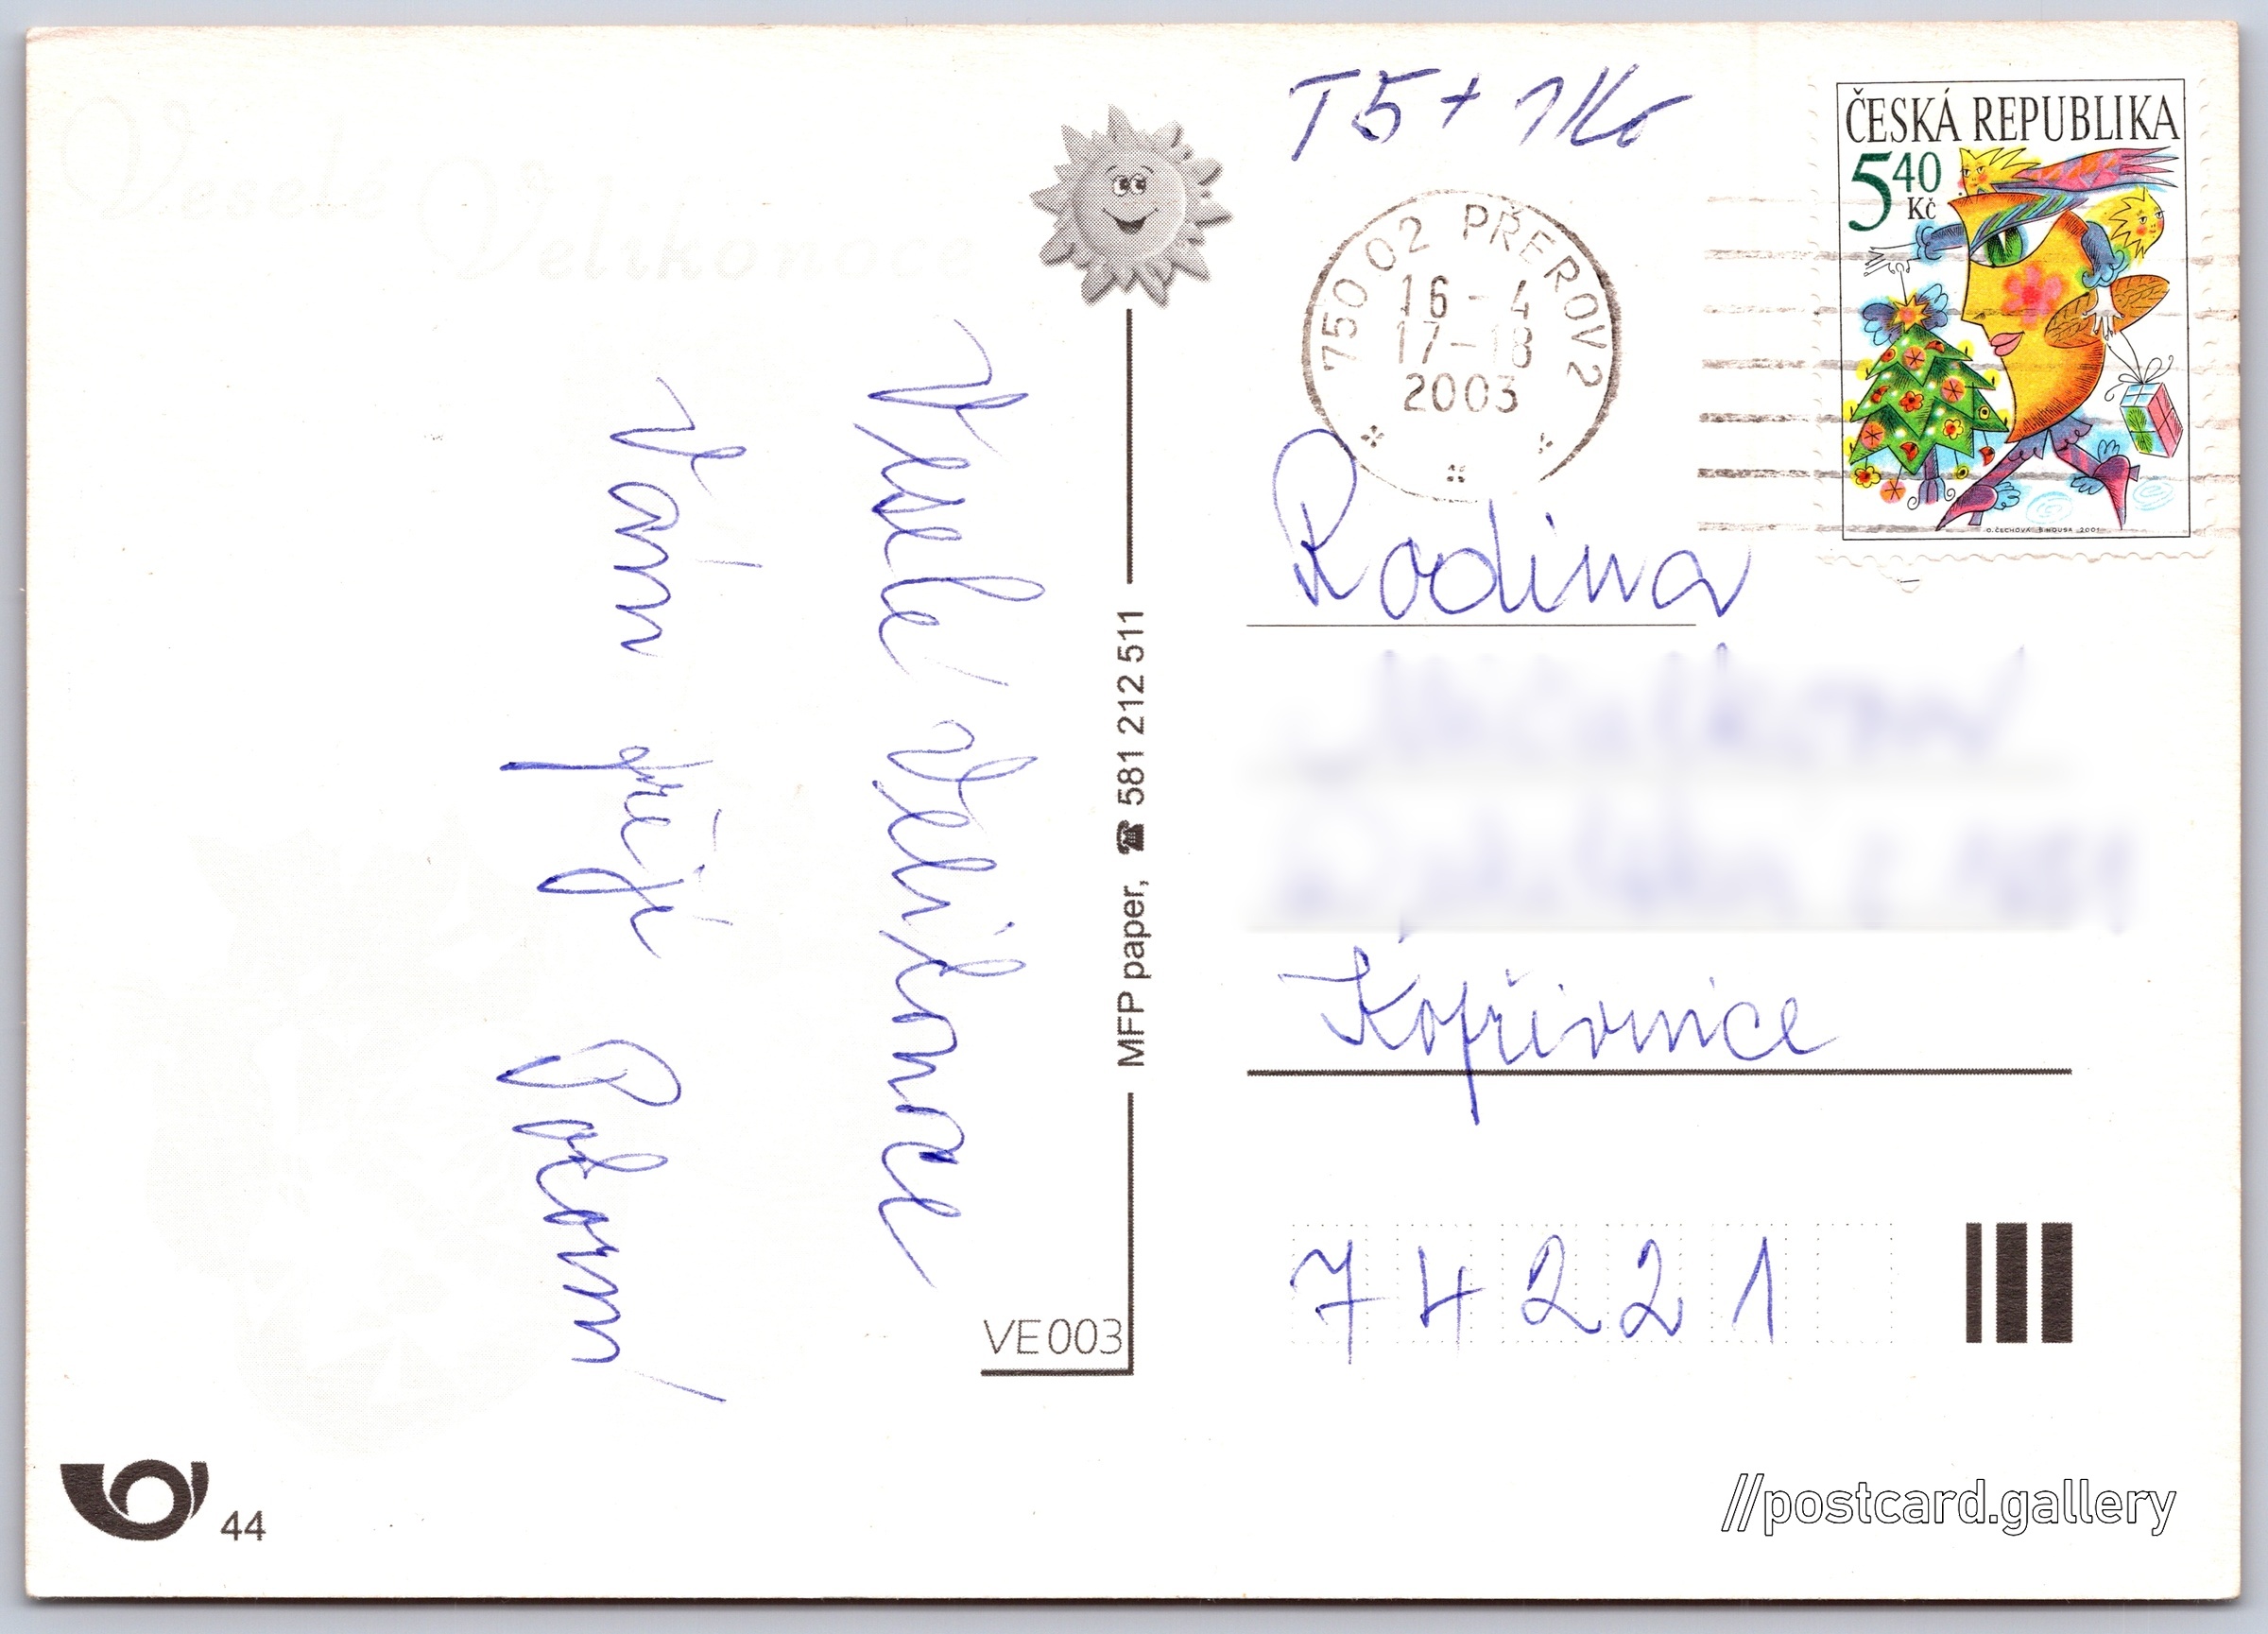 Veselé
Velikonoce
Veselé Velikonoce
Vám přejí
MFP paper, ☎ 581 212 511
VE003
44
T5 + 1Kč
ČESKÁ REPUBLIKA
5 40
Kč
O. ČECHOVÁ B. HOUSA 2001
750 02 PŘEROV 2
16 - 4
17-18
2003
Rodina
Kopřivnice
74221
//postcard.gallery